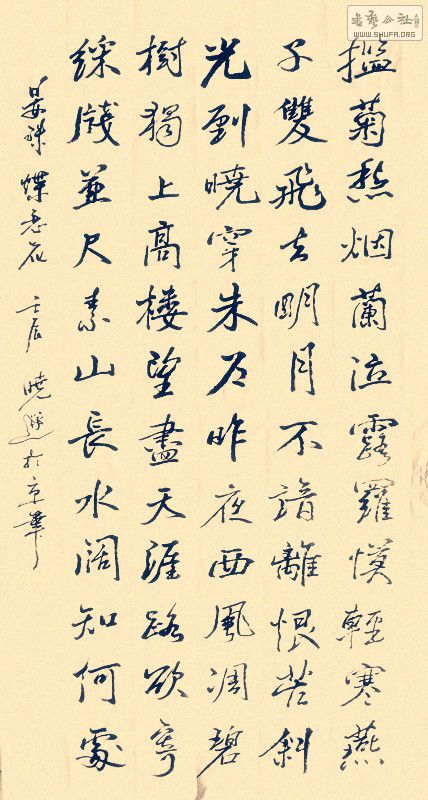 檻菊愁烟蘭泣露羅幙輕寒燕
子雙飛去明月不諳離恨苦斜
光到曉穿朱户昨夜西風凋碧
樹獨上高楼望盡天涯路欲寄
綵牋兼尺素山長水闊知何處
晏殊蝶恋花 壬辰 曉於京華
書藝公社
WWW.SHUFA.ORG